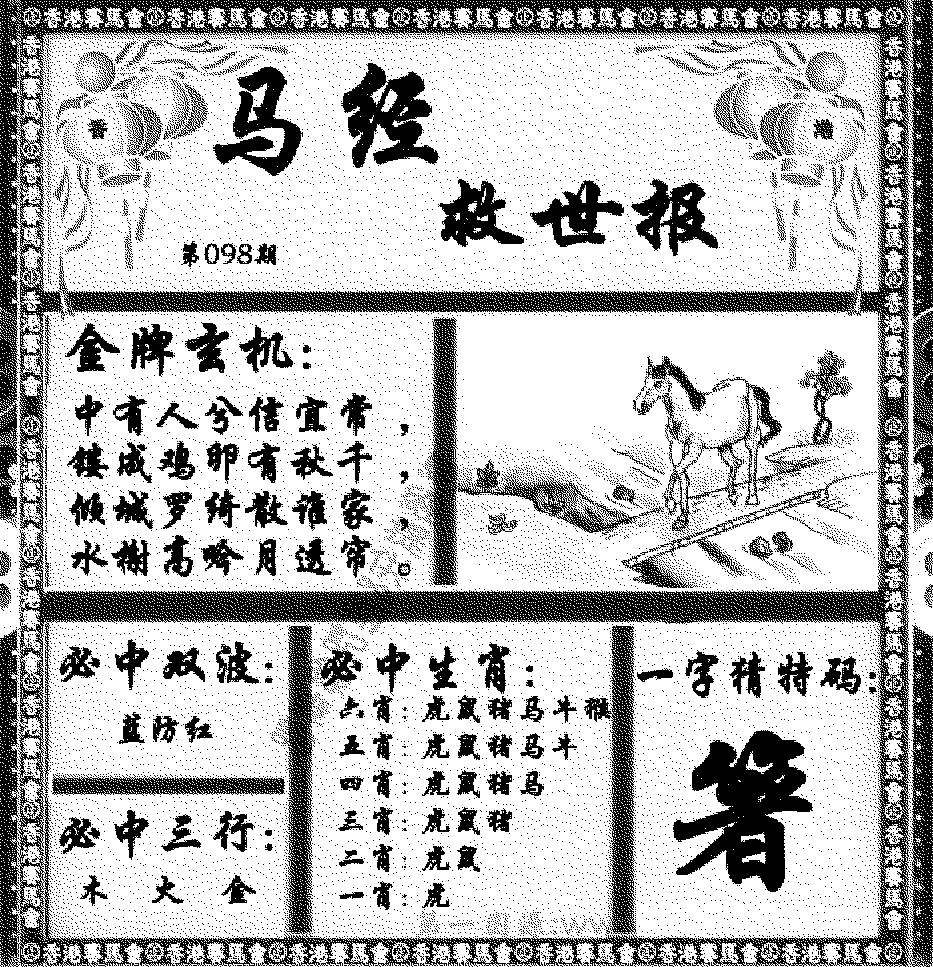 香港賽馬會
香
港
马经
救世报
第098期
金牌玄机:
中有人兮信宜常,
镂成鸡卵有秋千,
倾城罗绮散谁家,
水榭高吟月透帘。
必中双波:
蓝防红
必中三行:
木 火 金
必中生肖:
六肖:虎鼠猪马牛猴
五肖:虎鼠猪马牛
四肖:虎鼠猪马
三肖:虎鼠猪
二肖:虎鼠
一肖:虎
一字猜特码:
箸